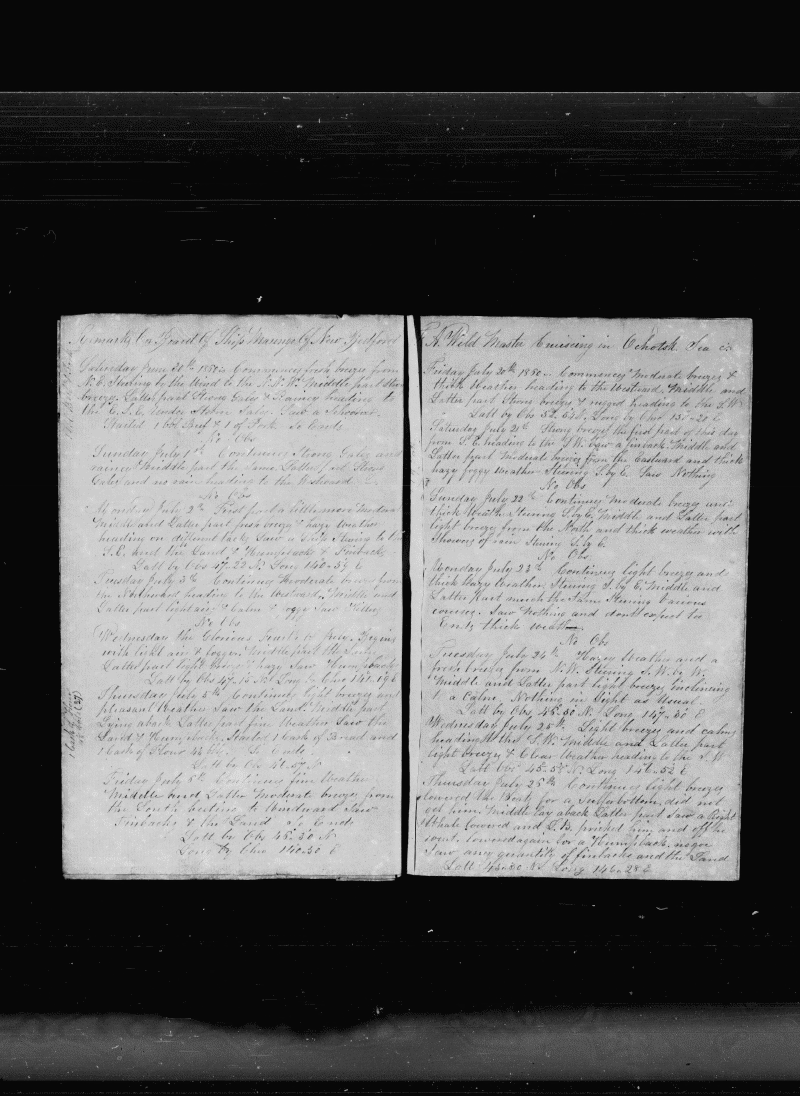 Remarks On Board of Ship Marengo of New Bedford
Saturday June 30th 1850 Commences fresh breeze from
N.E. Steering by the Wind to the N.N.W. Middle part Strong
breeze. Latter part Strong Gale & Rainey heading to
the E.S.E. under Storm Sails. Saw a Schooner.
Started 1 bbl Beef & 1 of Pork So Ends
No Obs
Sunday July 1st Continues Strong Gales and
rainey Middle part the Same Latter part Strong
Gales and no rain heading to the Westward
No Obs
Monday July 2nd First part a little more Moderate
Middle and Latter part fresh breeze & haze weather
heading on different tacks Saw a Ship Steering to the
S.E. and the Land & Humpbacks & Finbacks
Latt by Obs 47-22 N Long 140-39 E
Tuesday July 3d Continues Moderate breeze from
the Northward heading to the Westward Middle and
Latter part light airs & Calm & foggy Saw
No Obs
Wednesday the Glorious Fourth of July. Begins
with light air & foggy. Middle part the Same
Latter part light breeze & haze Saw Humpbacks
Latt by Obs 47-15 N Long by Chro 141-19 E
Thursday July 5th Continues light breezes and
pleasant Weather Saw the Land. Middle part
Lying aback Latter part fine Weather Saw the
Land & Humpbacks. Started 1 Cask of Bread and
1 Cask of Flour So Ends
Friday July 6th Continues fine Weather
Middle and Latter Moderate breeze from
the South beating to Windward Saw
Finbacks & the Land So Ends
Latt by Obs 45-30 N
Long by Chro 140-30 E
1 Cask of Flour
A Wild Master Cruising in Ochotsk Sea
Friday July 20th 1850. Commences Moderate breezes &
thick Weather heading to the Westward. Middle and
Latter part Strong breezes & rugged heading to the S.W
Latt by Obs Long by Chro
Saturday July 21st Strong breezes the first part of this day
from S.E. heading to the S.W. Saw a finback. Middle and
Latter part Moderate breezes from the Eastward and thick
hazy foggy Weather Steering S. by E. Saw Nothing
No Obs
Sunday July 22nd Continues Moderate breezes and
thick Weather Steering S. by E. Middle and Latter part
light breezes from the North and thick weather with
Showers of rain Steering S. by E.
No Obs
Monday July 23d Continues light breezes and
thick hazy Weather, Steering S. by E. Middle and
Latter part much the Same Steering Various
courses. Saw Nothing and dont expect to
Ends thick weather
No Obs
Tuesday July 24th Hazy Weather and a
fresh breeze from N.W. Steering S.W. by W.
Middle and Latter part light breezes inclining
to a Calm. Nothing in Sight as Usual
Latt by Obs 45-30 N Long 147-30 E
Wednesday July 25th Light breezes and calms
heading to the S.W. Middle and Latter part
light breezes & Clear Weather heading to the S.W
Latt Obs 45-58 N. Long 146-52 E
Thursday July 26th Continues light breezes
lowered the Boats for a Sulpherbottom did not
get him. Middle lay aback Latter part Saw a Right
Whale lowered and L.B. pricked him and off he
went. lowered again for a Humpback, no go
Saw any quantity of finbacks and the Land
Latt 45-30 N Long 146-28 E